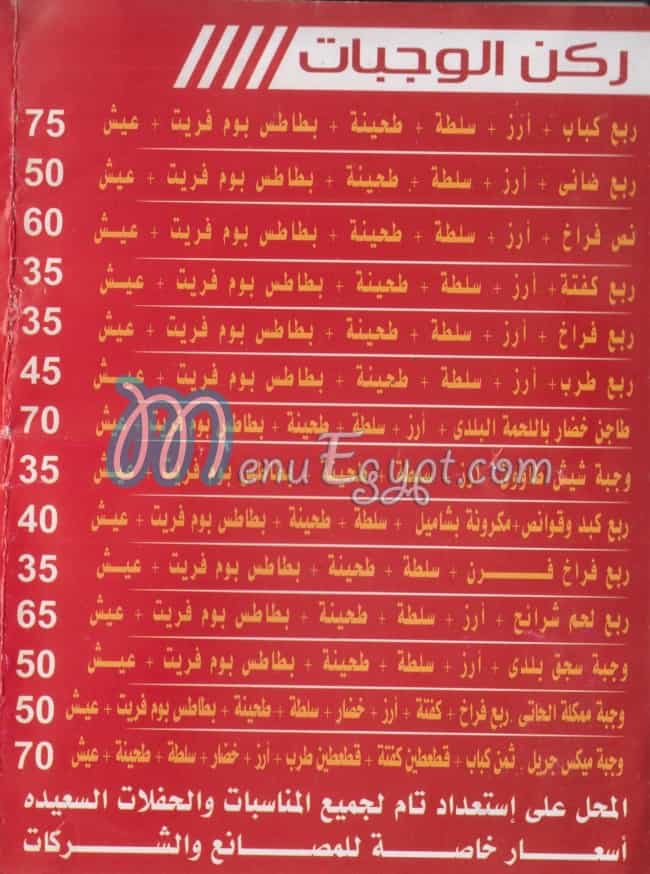 ركن الوجبات
ربع كباب + أرز + سلطة + طحينة + بطاطس بوم فريت + عيش 75
ربع ضانى + أرز + سلطة + طحينة + بطاطس بوم فريت + عيش 50
نص فراخ + أرز + سلطة + طحينة + بطاطس بوم فريت + عيش 60
ربع كفتة + أرز + سلطة + طحينة + بطاطس بوم فريت + عيش 35
ربع فراخ + أرز + سلطة + طحينة + بطاطس بوم فريت + عيش 35
ربع طرب + أرز + سلطة + طحينة + بطاطس بوم فريت + عيش 45
طاجن خضار باللحمة البلدى + أرز + سلطة + طحينة + بطاطس بوم فريت + عيش 70
وجبة شيش طاووق + أرز + سلطة + طحينة + بطاطس بوم فريت + عيش 35
MenuEgypt.com
ربع كبد وقوانص + مكرونة بشاميل + سلطة + طحينة + بطاطس بوم فريت + عيش 40
ربع فراخ فرن + سلطة + طحينة + بطاطس بوم فريت + عيش 35
ربع لحم شرائح + أرز + سلطة + طحينة + بطاطس بوم فريت + عيش 65
وجبة سجق بلدى + أرز + سلطة + طحينة + بطاطس بوم فريت + عيش 50
وجبة ممكلة الحاتى . ربع فراخ + كفتة + أرز + خضار + سلطة + طحينة + بطاطس بوم فريت + عيش 50
وجبة ميكس جريل . ثمن كباب + قطعطين كفتة + قطعطين طرب + أرز + خضار + سلطة + طحينة + عيش 70
المحل على إستعداد تام لجميع المناسبات والحفلات السعيده
أسعار خاصة للمصانع والشركات